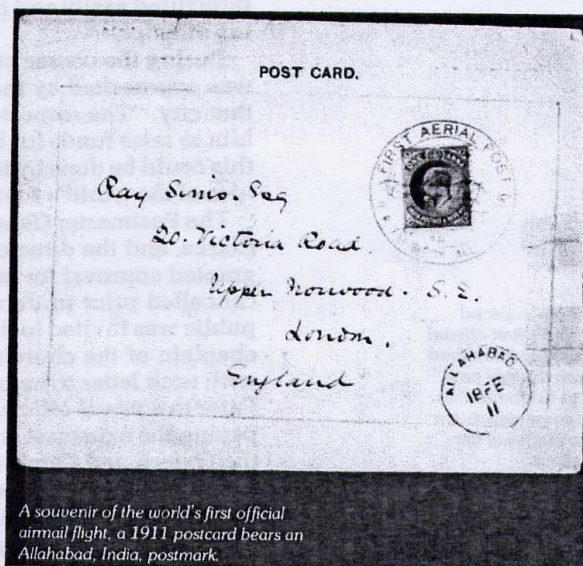 POST CARD.
FIRST AERIAL POST
Ray Simis. Esq
20. Victoria Road
Upper Norwood. S. E.
London.
England
ALLAHABAD
18 FE
11
A souvenir of the world's first official
airmail flight, a 1911 postcard bears an
Allahabad, India, postmark.